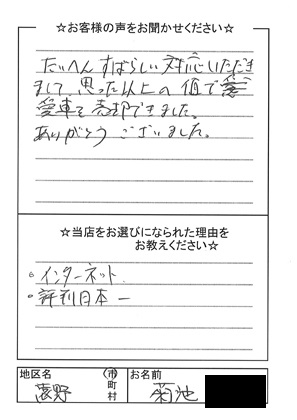 ☆お客様の声をお聞かせください☆
たいへん すばらしい 対応いただき
まして、思った以上の 値で
愛車を売却できました。
ありがとう ございました。
☆当店をお選びになられた理由を
お教えください☆
・インターネット
・評判日本一
地区名
市
町
村
お名前
菊池